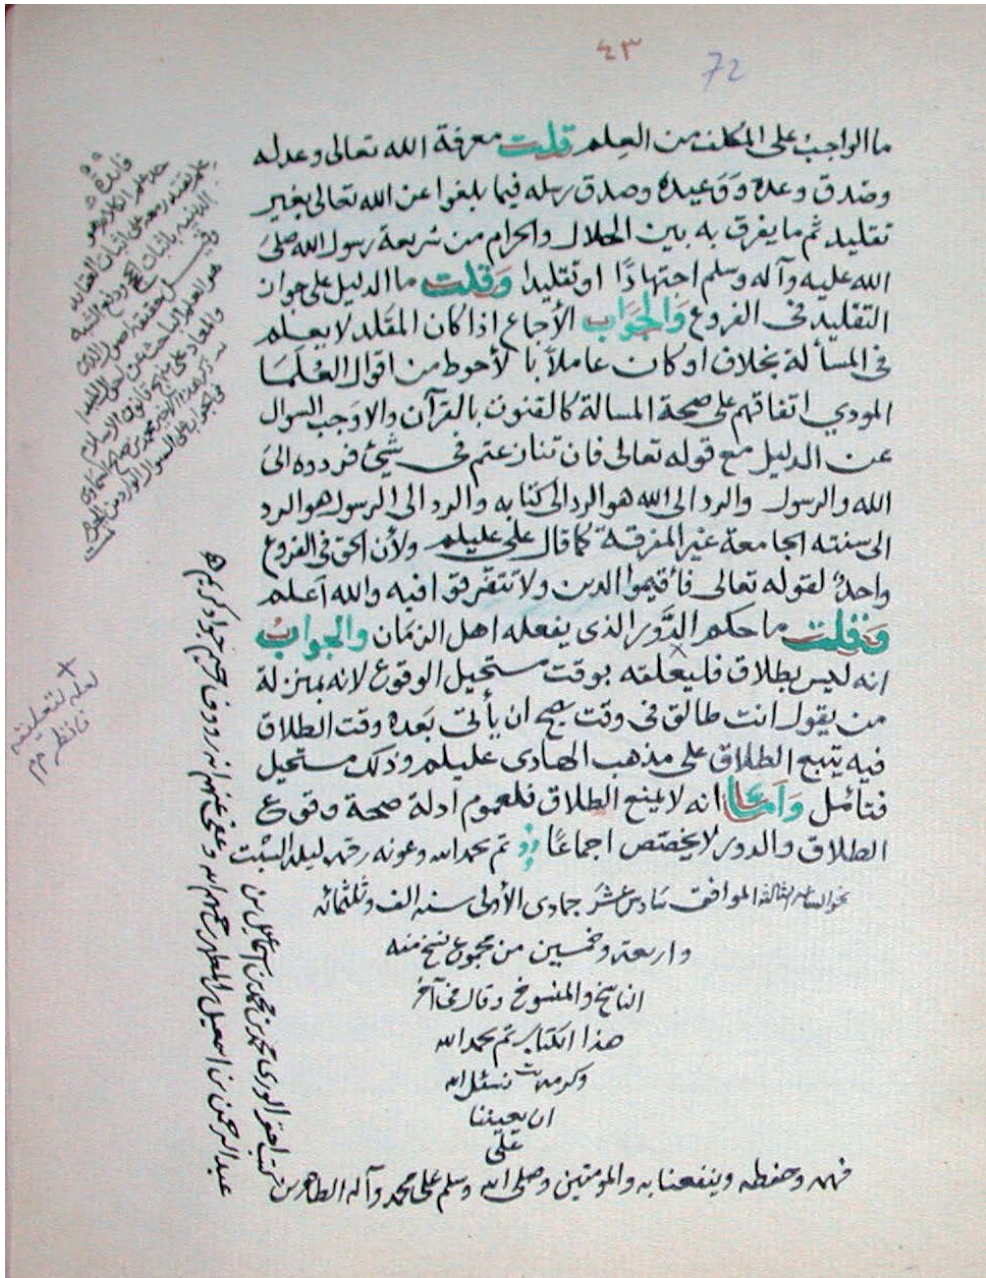 ٤٣
72
ما الواجب على المكلف من العلم قلت معرفة الله تعالى وعدله
وصدق وعده وَوَعيده وصدق رسله فيما بلغوا عن الله تعالى بغير
تقليد ثم ما يفرق به بين الحلال والحرام من شريعة رسول الله صلى
الله عليه وآله وسلم اجتهادًا او تقليدا وَقلت ما الدليل على جواز
التقليد في الفروع وَالجَوَاب الأجماع اذا كان المقلد لا يعلم
في المسألة بخلاف او كان عاملاً با لأحوط من اقوال العُلمَا
المودي اتفاقهم على صحة المسالة كالقنوت بالقرآن والا وَجب السوال
عن الدليل مع قوله تعالى فان تنازعتم في شيئ فردوه الى
الله والرسول والرد الى الله هو الرد الى كتابه والرد الى الرسول هو الرد
الى سنته الجامعة غير المفرقة كما قال علي عليلم ولأن الحق في الفروع
واحدٌ لقوله تعالى فأقيموا الدين ولا تتفرقوا فيه والله اَعلم
وَقلت ما حكم الدَّور الذي يفعله اهل الزمَان والجواب
انه ليس بطلاق فليعلقه بوقت مستحيل الوقوع لانه بمنزلة
من يقول انت طالق في وقت يصح ان يأتى بَعده وقت الطلاق
فيه يتبع الطلاق على مذهب الهادى عليلم وذلك مستحيل
فتأمل وَاَما انه لا يمنع الطلاق فلعموم اَدلة صحة وقوع
الطلاق والدور لا يختص اجماعًا تم بحمد الله وعونه رقمه ليلة السبت
الموافق سَادس عشَر جمادى الأولى سنه الف وثلثمائه
واربعة وخمسين من مجموع نسخ منه
الناسخ والمنسوخ وقال في آخر
هذا الكتاب تم بحمد الله
وكرمه نسئل الله
ان يعيننا
على
فهمه وحفظه وينفعنا به والمؤمنين وصلى الله وسلم على محمد وآله الطاهرين
كتب احقر الورى محمد بن محمد بن اسماعيل بن
عبد الرحمن بن اسمعيل المطهر رحمهم الله وعفى عنهم انه رووف رحيم جواد كريم
فائدة
حد علم الكلام هو
علم يقتدر معه على اثبات العقايد
الدينية باثبات الحجج ودفع الشبه
وقيل حقيقة اصول الدين
هو العلم الباحث عن احوال المبدا
والمعاد على نهج قانون الاسلام
لعله لتعليقه
فانظر